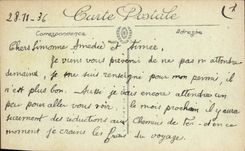 28.11.36
Carte Postale
Correspondance
Adresse
Chers Simonne Amedée et Aimée.
Je viens vous prévenir de ne pas m'attendre
demain, je me suis renseigné pour mon permi, il
n'est plus bon. Aussi je vais encore attendre un
peu pour aller vous voir. le mois prochain il y aura
surement des réductions aux Chemins de Fer. d'en ce
moment je crains les frais du voyage